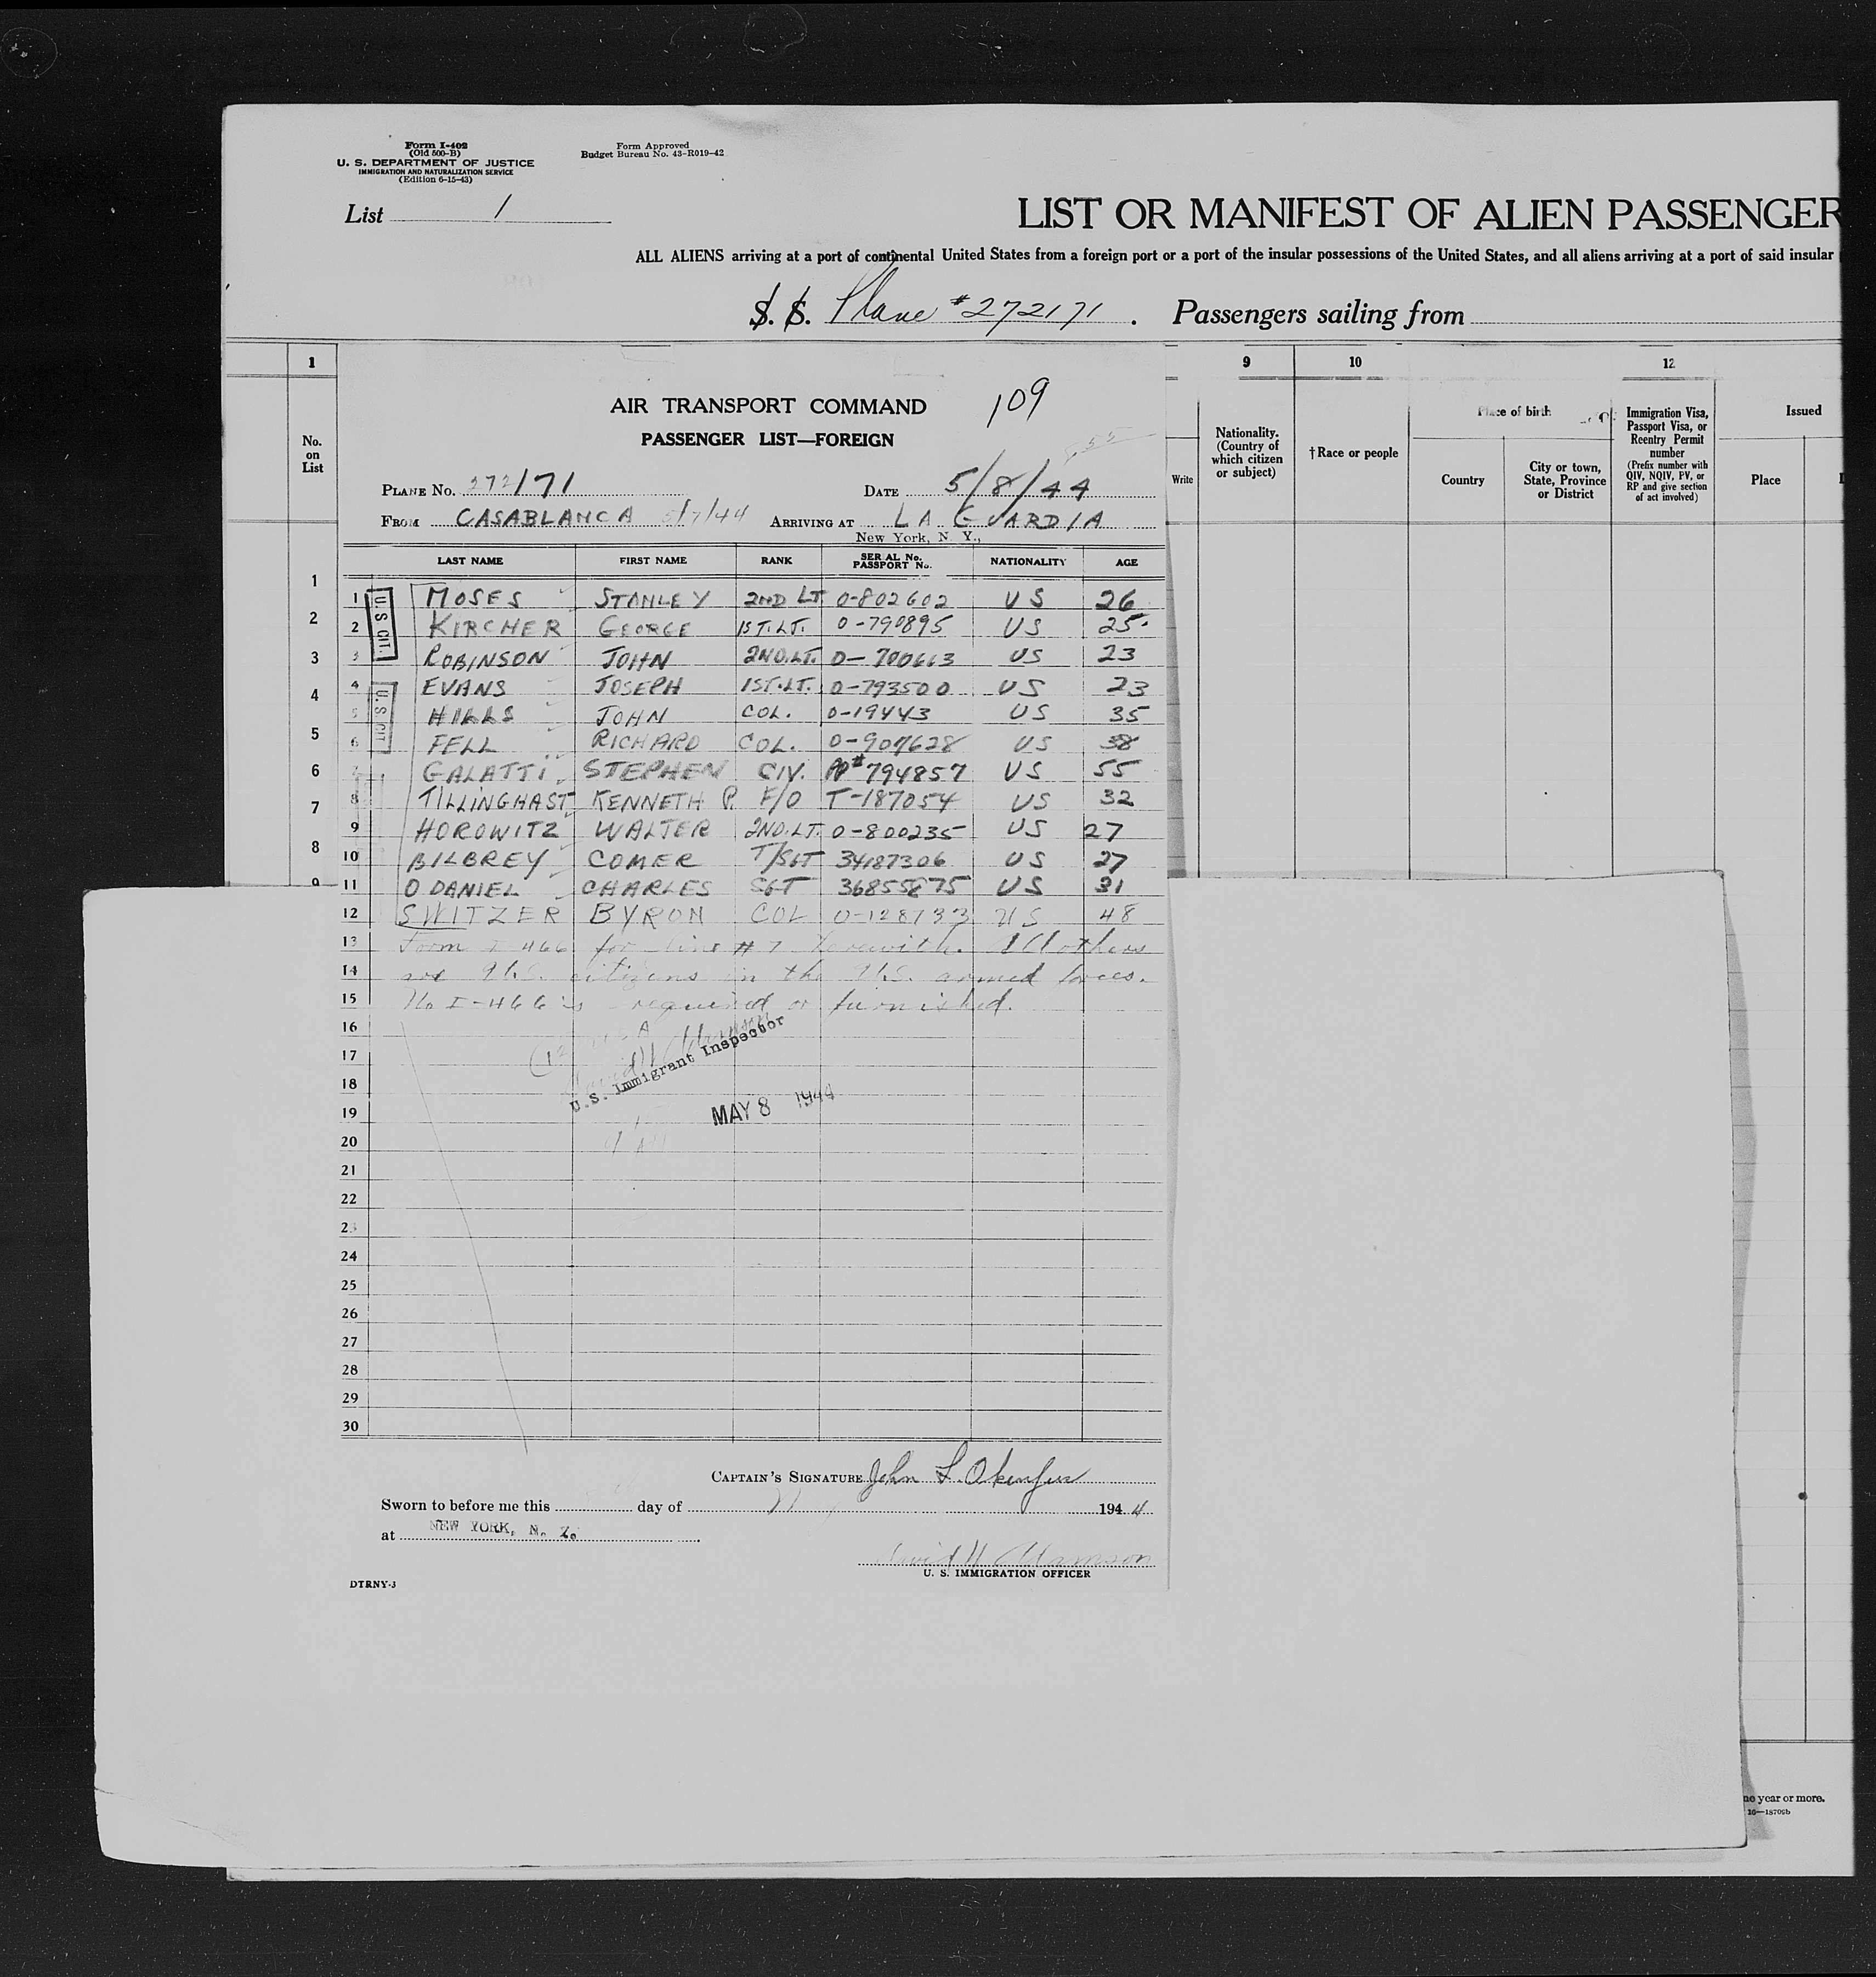 Form I-402
(Old 500-B)
U. S. DEPARTMENT OF JUSTICE
IMMIGRATION AND NATURALIZATION SERVICE
(Edition 6-15-43)
Form Approved
Budget Bureau No. 43-R019-42
List 1
LIST OR MANIFEST OF ALIEN PASSENGER
ALL ALIENS arriving at a port of continental United States from a foreign port or a port of the insular possessions of the United States, and all aliens arriving at a port of said insular
S. S. Plane #272171. Passengers sailing from
1 9 10 12
No. on List
Write
Nationality. (Country of which citizen or subject)
†Race or people
Place of birth
Country
City or town, State, Province or District
Immigration Visa, Passport Visa, or Reentry Permit number
(Prefix number with QIV, NQIV, PV, or RP and give section of act involved)
Issued
Place
1
2
3
4
5
6
7
8
9
AIR TRANSPORT COMMAND 109
PASSENGER LIST—FOREIGN
PLANE No. 272/71 DATE 5/8/44
FROM CASABLANCA 5/7/44 ARRIVING AT LA GUARDIA
New York, N. Y.,
LAST NAME FIRST NAME RANK SERIAL No. PASSPORT No. NATIONALITY AGE
U. S. CIT.
U. S. CIT
1 MOSES STANLEY 2ND LT 0-802602 US 26
2 KIRCHER GEORGE 1ST. LT. 0-790895 US 25
3 ROBINSON JOHN 2ND. LT. 0-700613 US 23
4 EVANS JOSEPH 1ST. LT. 0-793500 US 23
5 HILLS JOHN COL. 0-19443 US 35
6 FELL RICHARD COL. 0-907628 US 38
7 GALATTI STEPHEN CIV. PP# 794857 US 55
8 TILLINGHAST KENNETH P. F/O T-187054 US 32
9 HOROWITZ WALTER 2ND. LT. 0-800235 US 27
10 BILBREY COMER T/SGT 34187306 US 27
11 O DANIEL CHARLES SGT 36855875 US 31
12 SWITZER BYRON COL 0-128733 US 48
13 Form I-466 for line #7 herewith. All others
14 are U.S. citizens in the U.S. armed forces.
15 No I-466 is required or furnished.
16
17
18
19
20
21
22
23
24
25
26
27
28
29
30
U.S. Immigrant Inspector
MAY 8 1944
CAPTAIN'S SIGNATURE John L.
Sworn to before me this day of 1944
at NEW YORK, N. Y.
David H. Adamson
U. S. IMMIGRATION OFFICER
DTRNY-3
ne year or more.
16—18709b